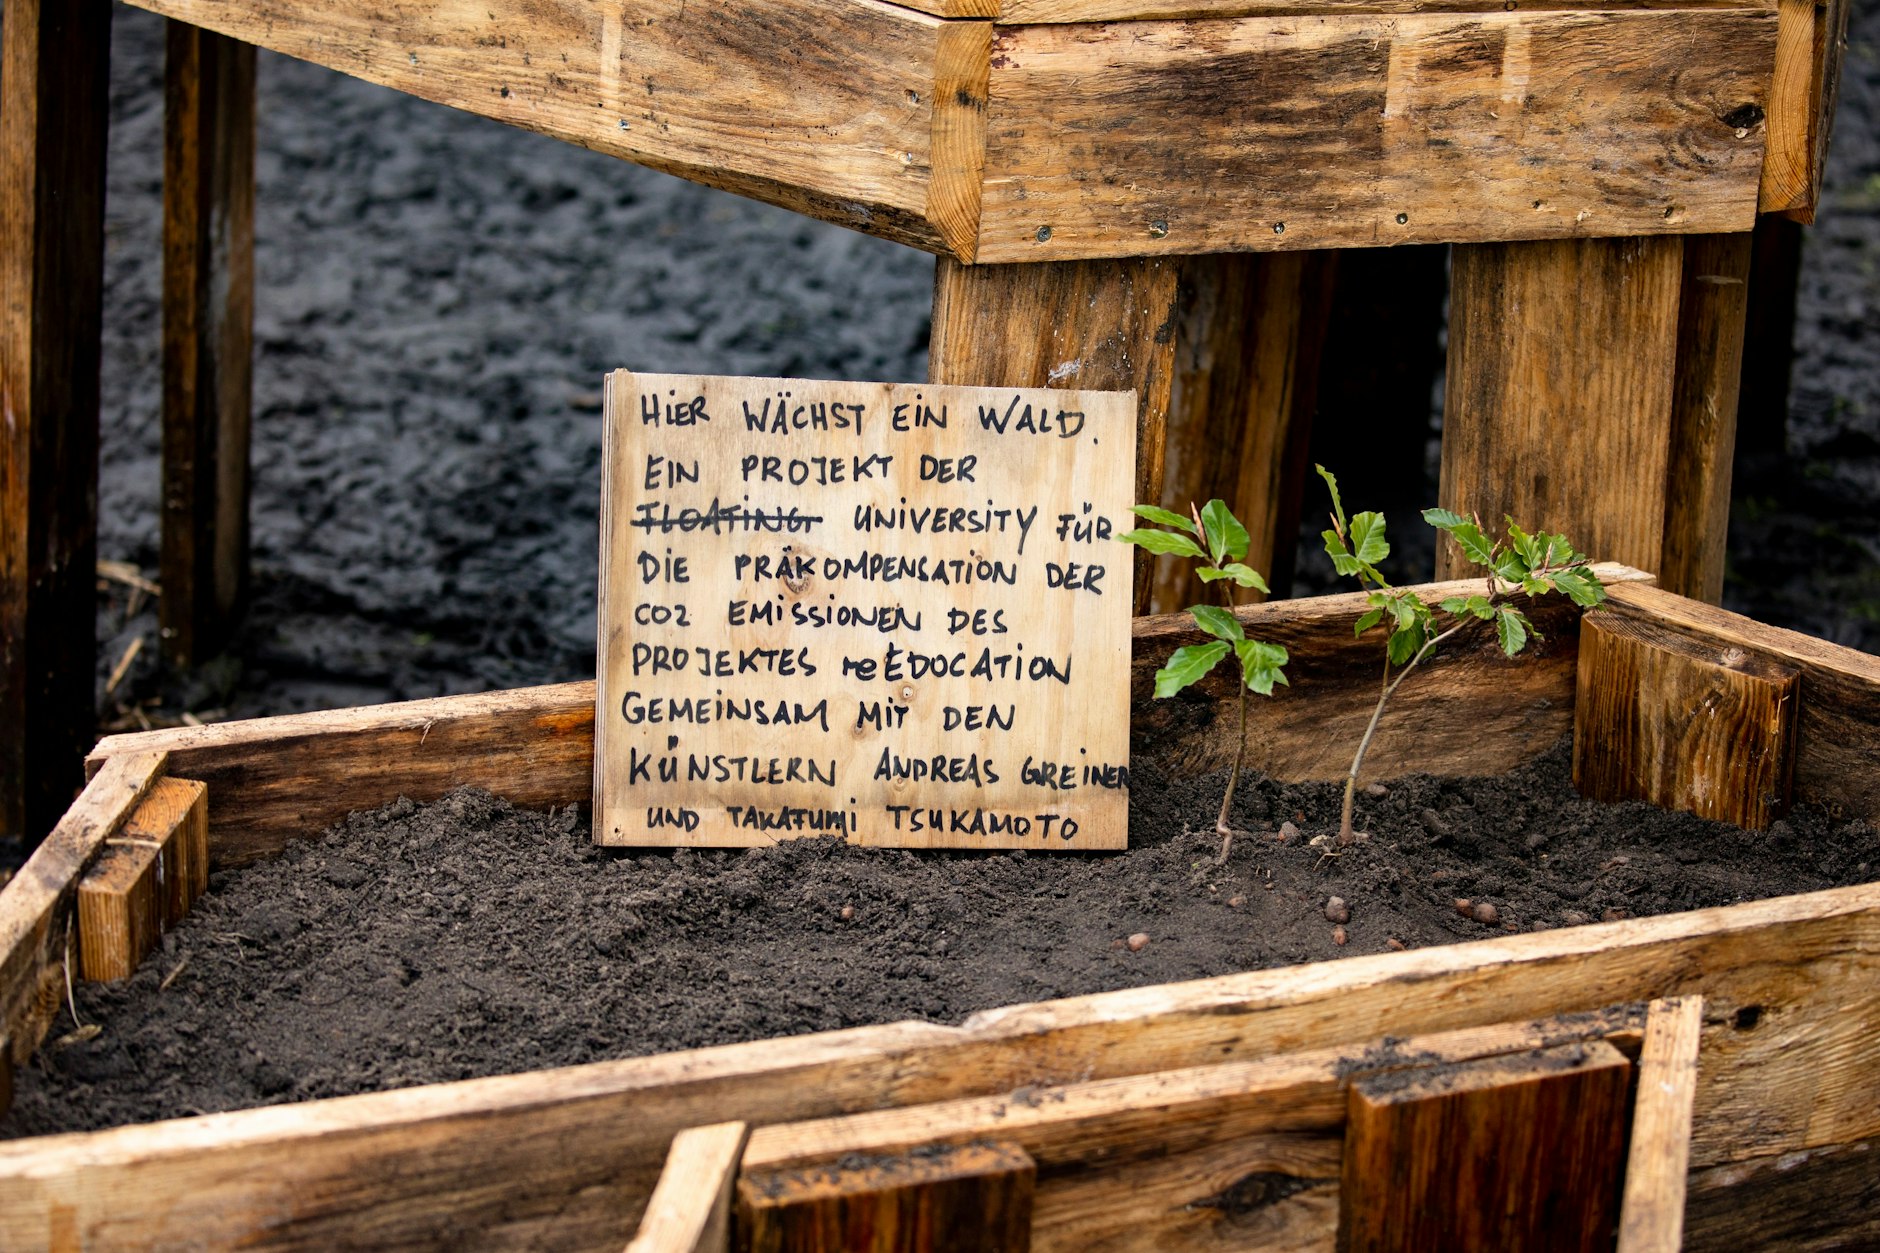 HiER WÄCHST EiN WALD.
EIN PROJEKT DER
FLOATiNG UNiVERSiTY FÜR
DiE PRÄKOMPENSATiON DER
CO2 EMiSSiONEN DES
PROJEKTES reEDOCATiON
GEMEiNSAM MiT DEN
KÜNSTLERN ANDREAS GREiNER
UND TAKAFUMi TSUKAMOTO